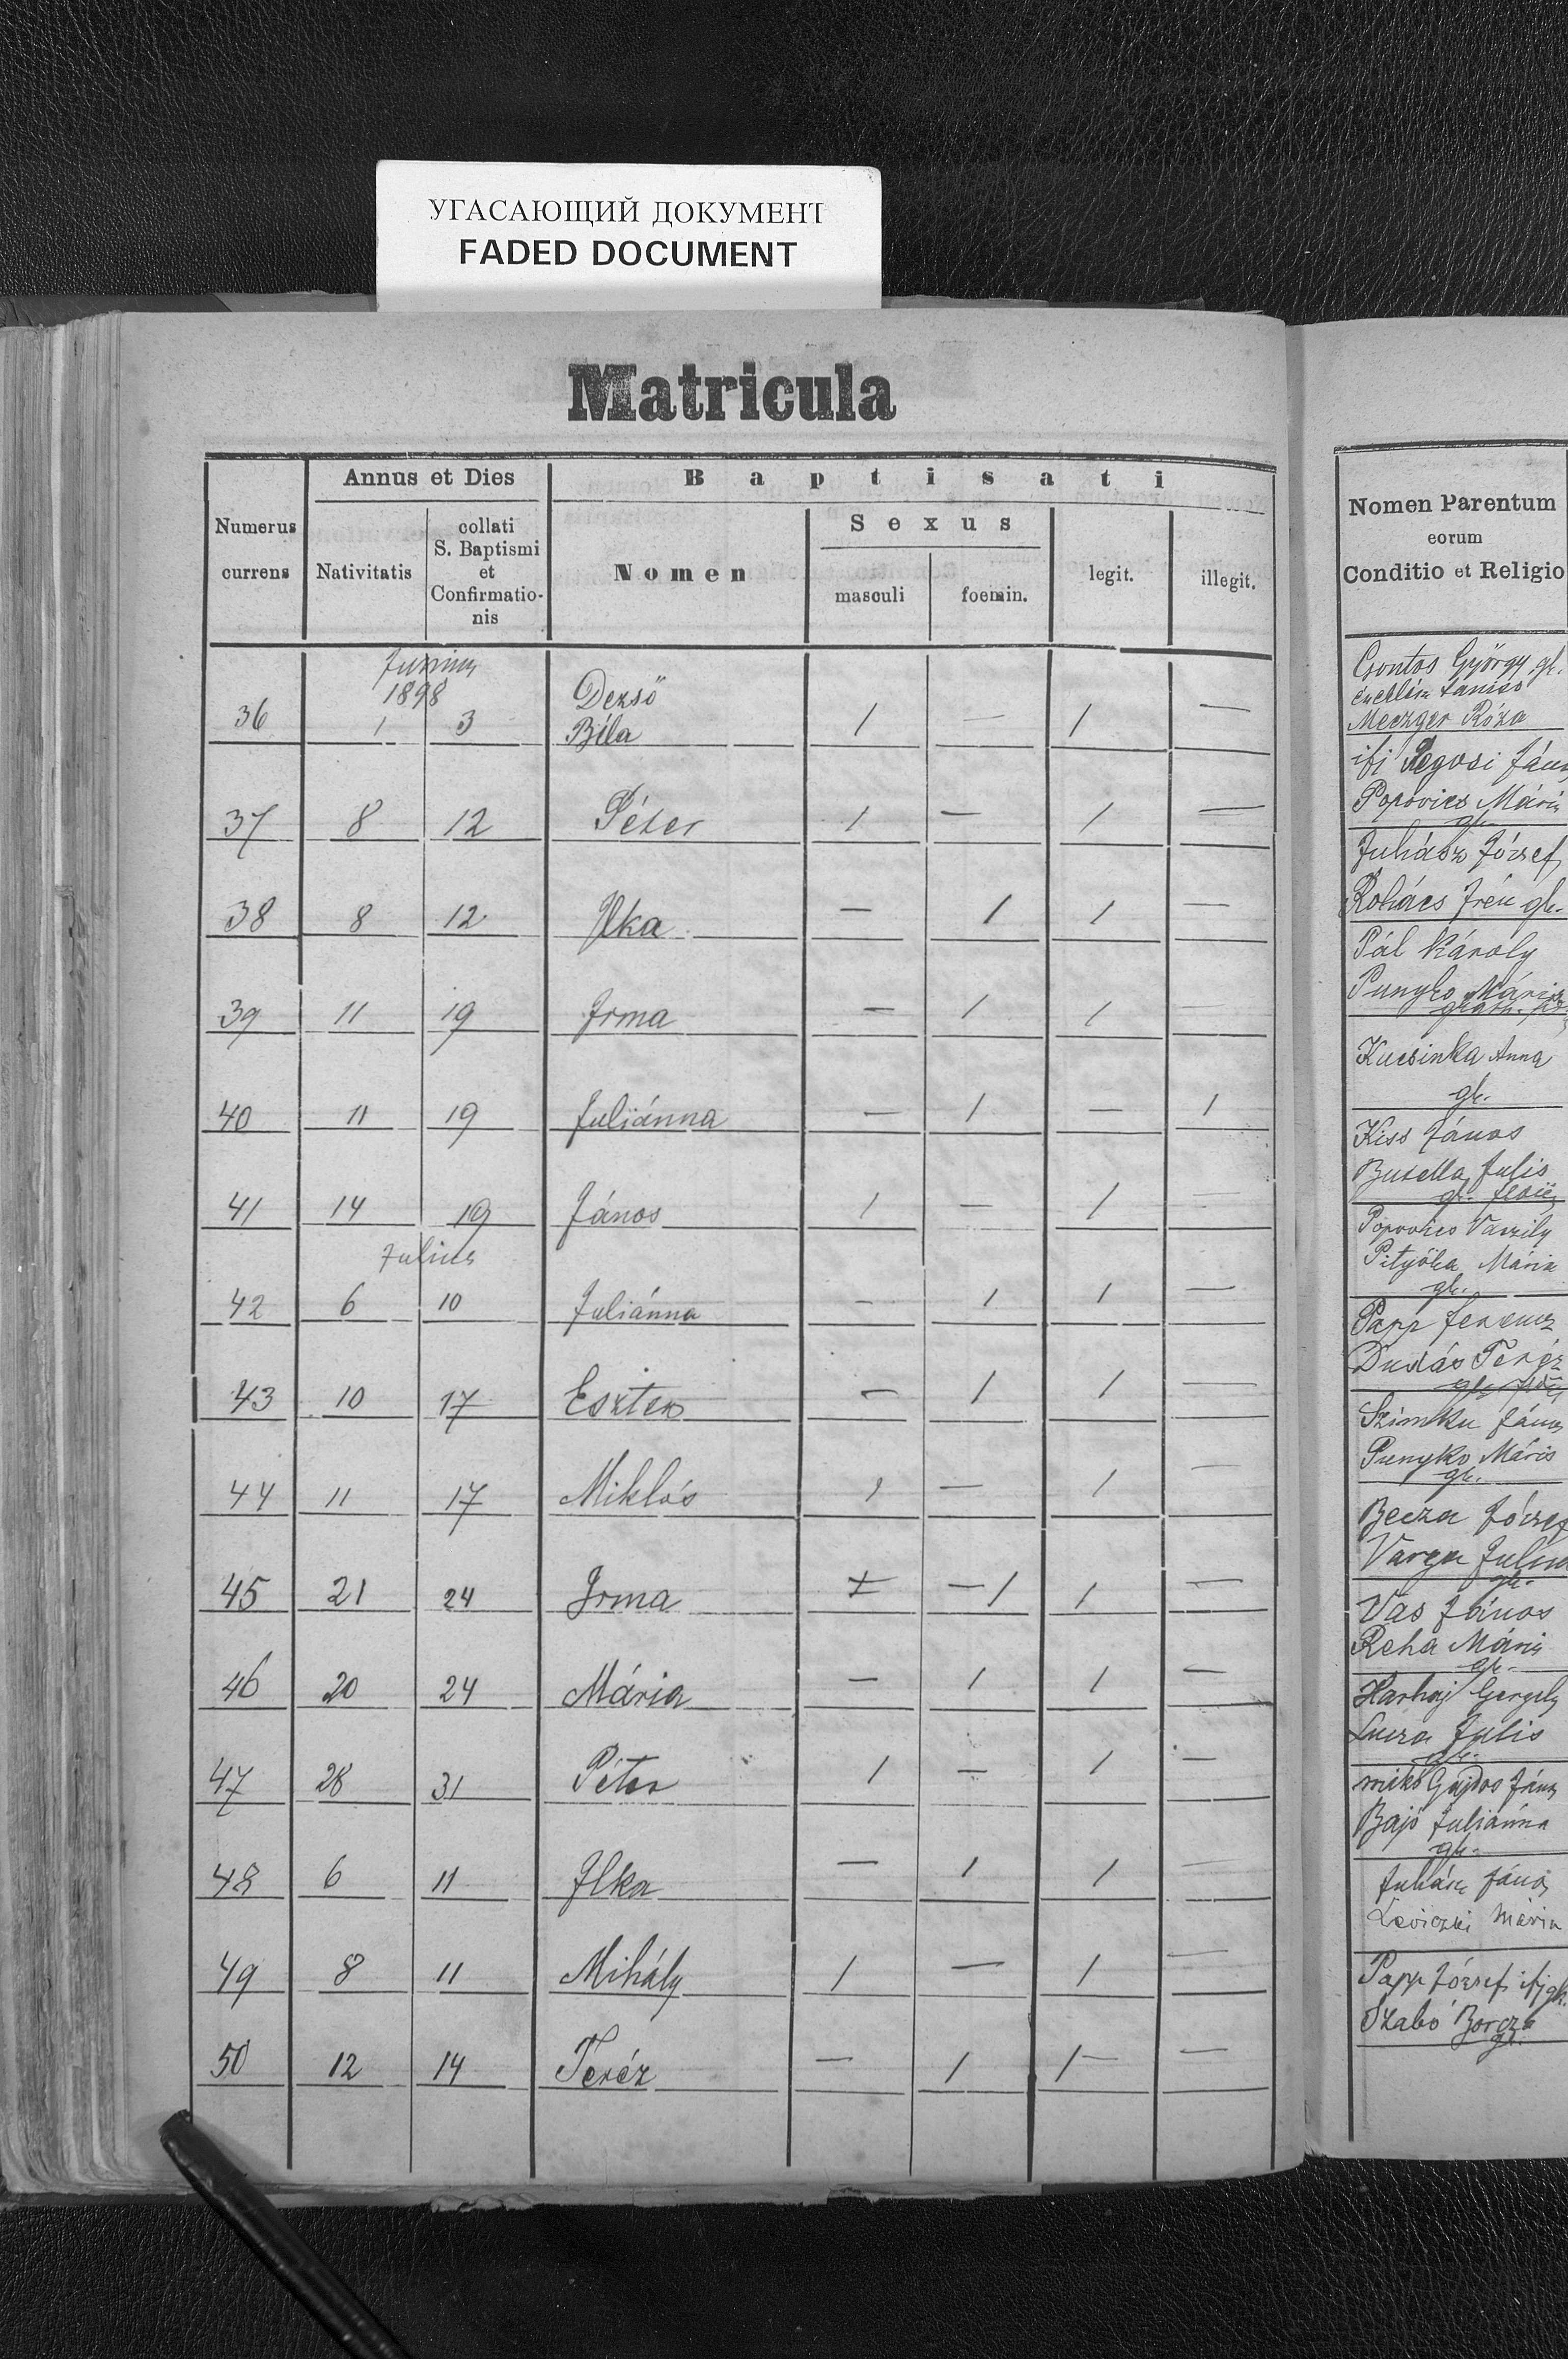 УГАСАЮЩИЙ ДОКУМЕНТ
FADED DOCUMENT
Matricula
Numerus currens
Annus et Dies
Nativitatis
collati S. Baptismi et Confirmatio-nis
Baptisati
Nomen
Sexus
masculi
foemin.
legit.
illegit.
Nomen Parentum
eorum
Conditio et Religio
Junius
1898
36 1 3 Dezső Béla 1 — 1 —
Csontos György gk.
Meczger Róza
37 8 12 Péter 1 — 1 —
ifj
Popovics Mária
gk.
38 8 12 Ilka — 1 1 —
Juhász József
Kohács Irén gk.
39 11 19 Irma — 1 1 —
Pál Károly
Punyko Máris
40 11 19 Juliánna — 1 — 1
Kucsinka Anna
gk.
41 14 19 János 1 — 1 —
Kiss János
Julis
gk.
Julius
42 6 10 Juliánna — 1 1 —
Popovics Vaszily
Mária
gk.
43 10 17 Eszter — 1 1 —
Papp Ferencz
Dudás Teréz
44 11 17 Miklós 1 — 1 —
Szimku János
Punyko Máris
gk.
45 21 24 Irma — 1 1 —
Becza József
Varga
gk.
46 20 24 Mária — 1 1 —
Vas János
Reha Mária
gk.
47 28 31 Péter 1 — 1 —
Harhaj Gergely
Julis
gk.
48 6 11 Ilka — 1 1 —
Gajdos János
Bajó Juliánna
gk.
49 8 11 Mihály 1 — 1 —
Juhász János
Leviczki Mária
50 12 14 Teréz — 1 1 —
Papp József ifj gk.
Szabó Borcza
gk.